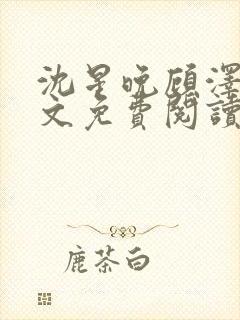 沈星晚顾泽
文免費閱讀
鹿茶白